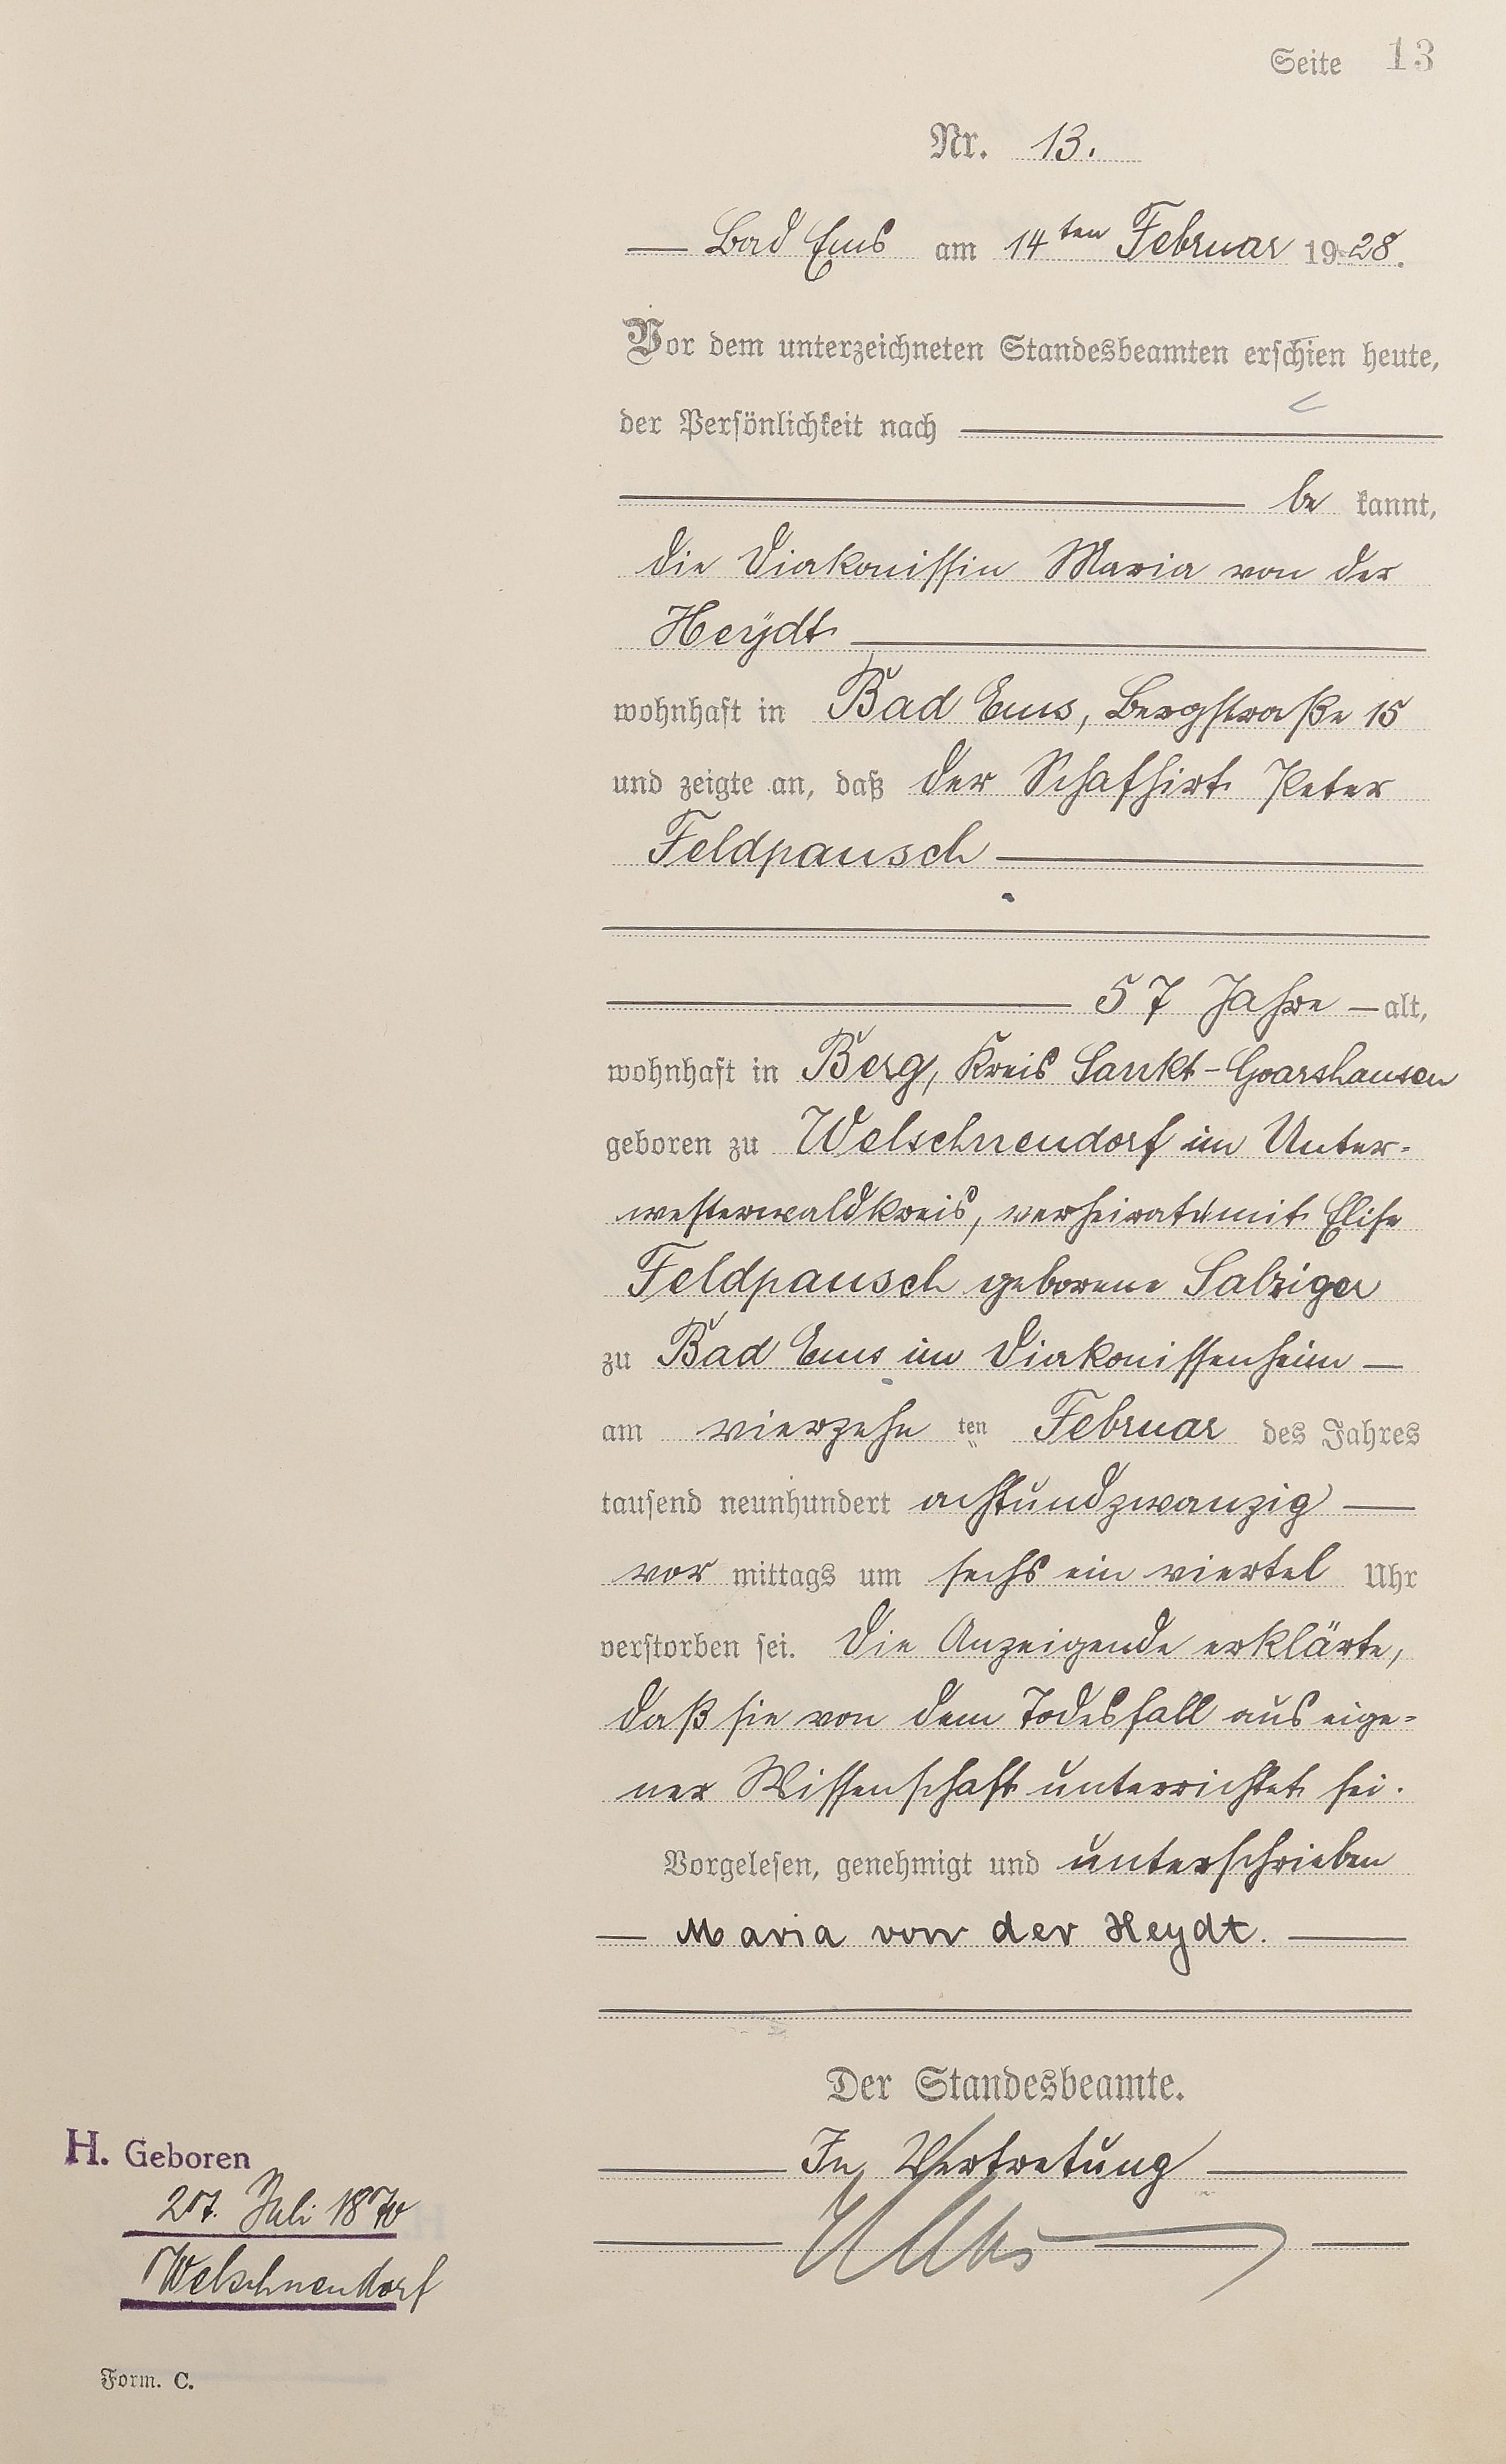 Seite 13
Nr. 13.
Bad Ems am 14ten Februar 1928.
Vor dem unterzeichneten Standesbeamten erschien heute,
der Persönlichkeit nach
be kannt,
die Diakonissin Maria von der
Heydt
wohnhaft in Bad Ems, Bergstraße 15
und zeigte an, daß der Schafhirt Peter
Feldpausch
57 Jahre alt,
wohnhaft in Berg, Kreis Sankt-Goarshausen
geboren zu Welschneudorf im Unter-
westerwaldkreis, verheiratet mit Elise
Feldpausch geborene Salziger
zu Bad Ems im Diakonissenheim
am vierzehn ten Februar des Jahres
tausend neunhundert achtundzwanzig
vor mittags um sechs ein viertel Uhr
verstorben sei. Die Anzeigende erklärte,
daß sie von dem Todesfall aus eige-
ner Wissenschaft unterrichtet sei.
Vorgelesen, genehmigt und unterschrieben
Maria von der Heydt.
Der Standesbeamte.
In Vertretung
H. Geboren
27. Juli 1870
Welschneudorf
Form. C.